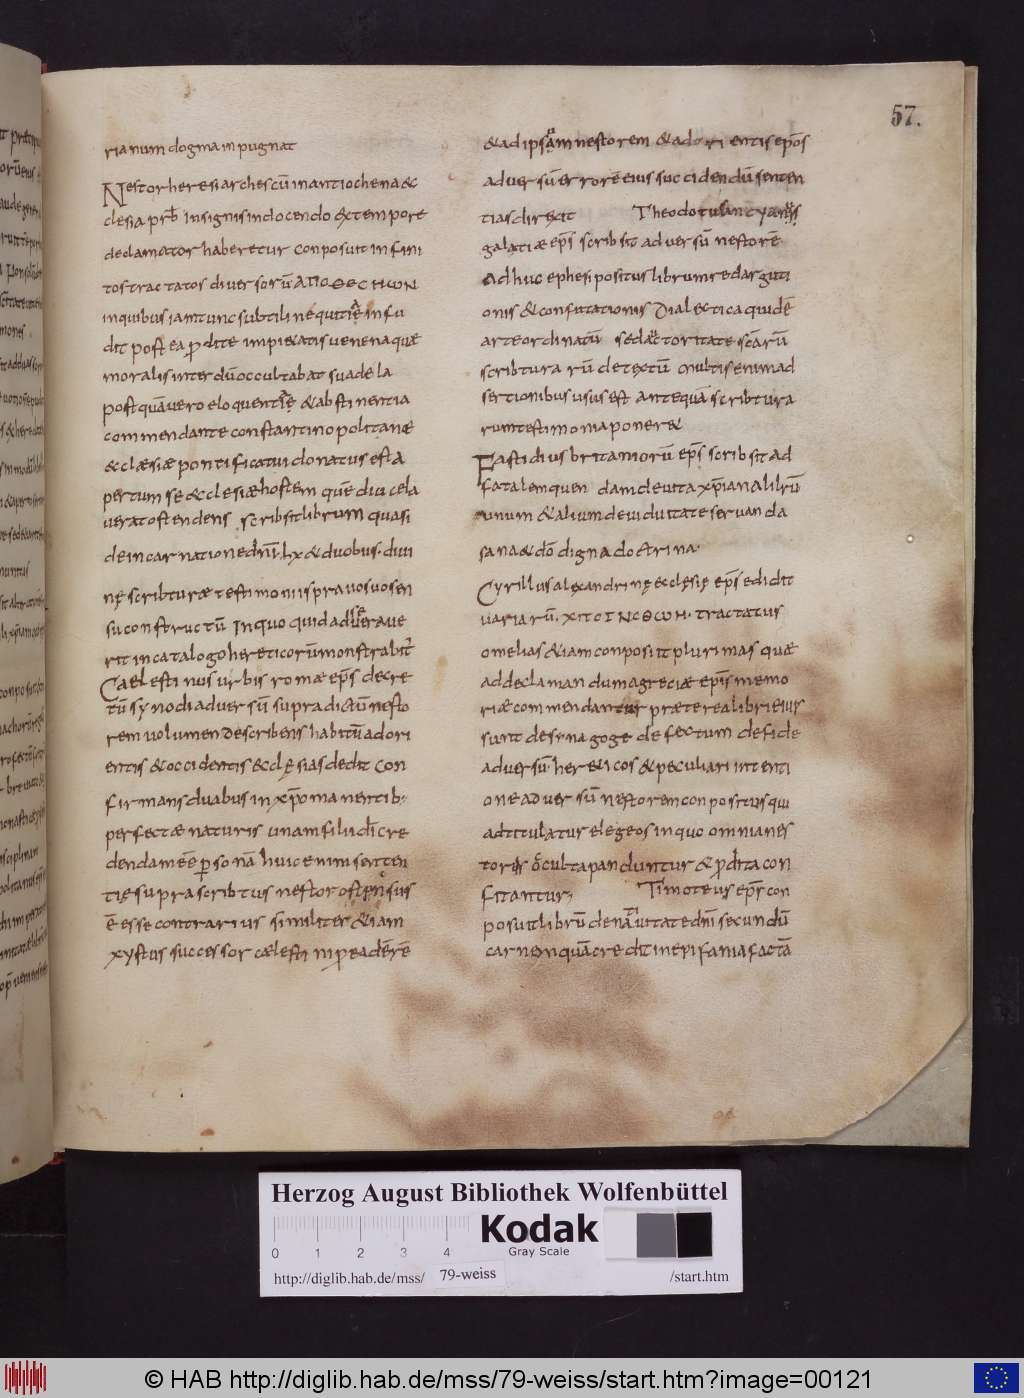 57.
rianum dogma inpugnat
Nestor heresiarches cū in antiochena &c
clesia prb̄ insignis in docendo extempore
declamator haberetur conposuit infini
tos tractatos diversorū ΑΠΟΘΕCΗωΝ
inquibus iam tunc subtili nequitię infu
dit postea prodite impietatis venena quae
moralis interdū occultabat suadela
postquā vero eloquentię & abstinentia
commendante constantinopolitanae
&clæsiæ pontificatui donatus est a
pertum se &cclesiæ hostem quē diu cela
verat ostendens . scribsit librum quasi
de incarnatione dn̄i . lx & duobus . divi
nę scribturæ testimoniis pravo suo sen
su constructū In quo quid adseverave
rit in catalogo hereticorū monstrabit̄
Caelestinus urbis romæ ep̄s decre
tū synodi adversū supradictū nesto
rem volumen describens habitū ad ori
entis & occidentis &clęsias dedit con
firmans duabus in xp̄o manentib;
perfectæ naturis unam filii dī cre
dendam eē psonā huic enim senten
tię supra scribtus nestor ostensus
ē esse contrarius similiter &iam
xystus successor cælestini p eadē rē
& ad ipsam nestorem & ad orientis ep̄os
adversū errorē eius succidendū senten
tias direxit Theodotus ancyranus
galatiæ ep̄s scribsit adversū nestorē
ad huc ephesi positus librum redarguti
onis & confutationis Dialectica quidē
arte ordinatū sed auctoritate scārū
scribturarū detextū multis enim ad
sertionibus usus est antequā scribtura
rum testimonia poner&
Fastidius britaniorū ep̄s scribsit ad
fatalem quendam de vita xp̄iana librū
unum & alium de viduitate servanda
sana & dō digna doctrina.
Cyrillus alexandrinę &clęsię ep̄s edidit
variarū . ΧΠΟΙΝCΘωΗ . tractatus
omelias &iam conposiit plurimas quæ
ad declamandum a greciæ ep̄is memo
riæ commendantur præterea libri eius
sunt de synagoge defectum de fide
adversū her&icos & peculiari intenti
one adversū nestorem conpositus qui
adtitulatur elegeos in quo omnia nes
toris occulta panduntur & pdita con
fitantur; Timoteus ep̄s con
posuit librū de nativitate dn̄i secundū
carnem quā credit in epifania factā
Herzog August Bibliothek Wolfenbüttel
0 1 2 3 4
Kodak
Gray Scale
http://diglib.hab.de/mss/ 79-weiss /start.htm
© HAB http://diglib.hab.de/mss/79-weiss/start.htm?image=00121